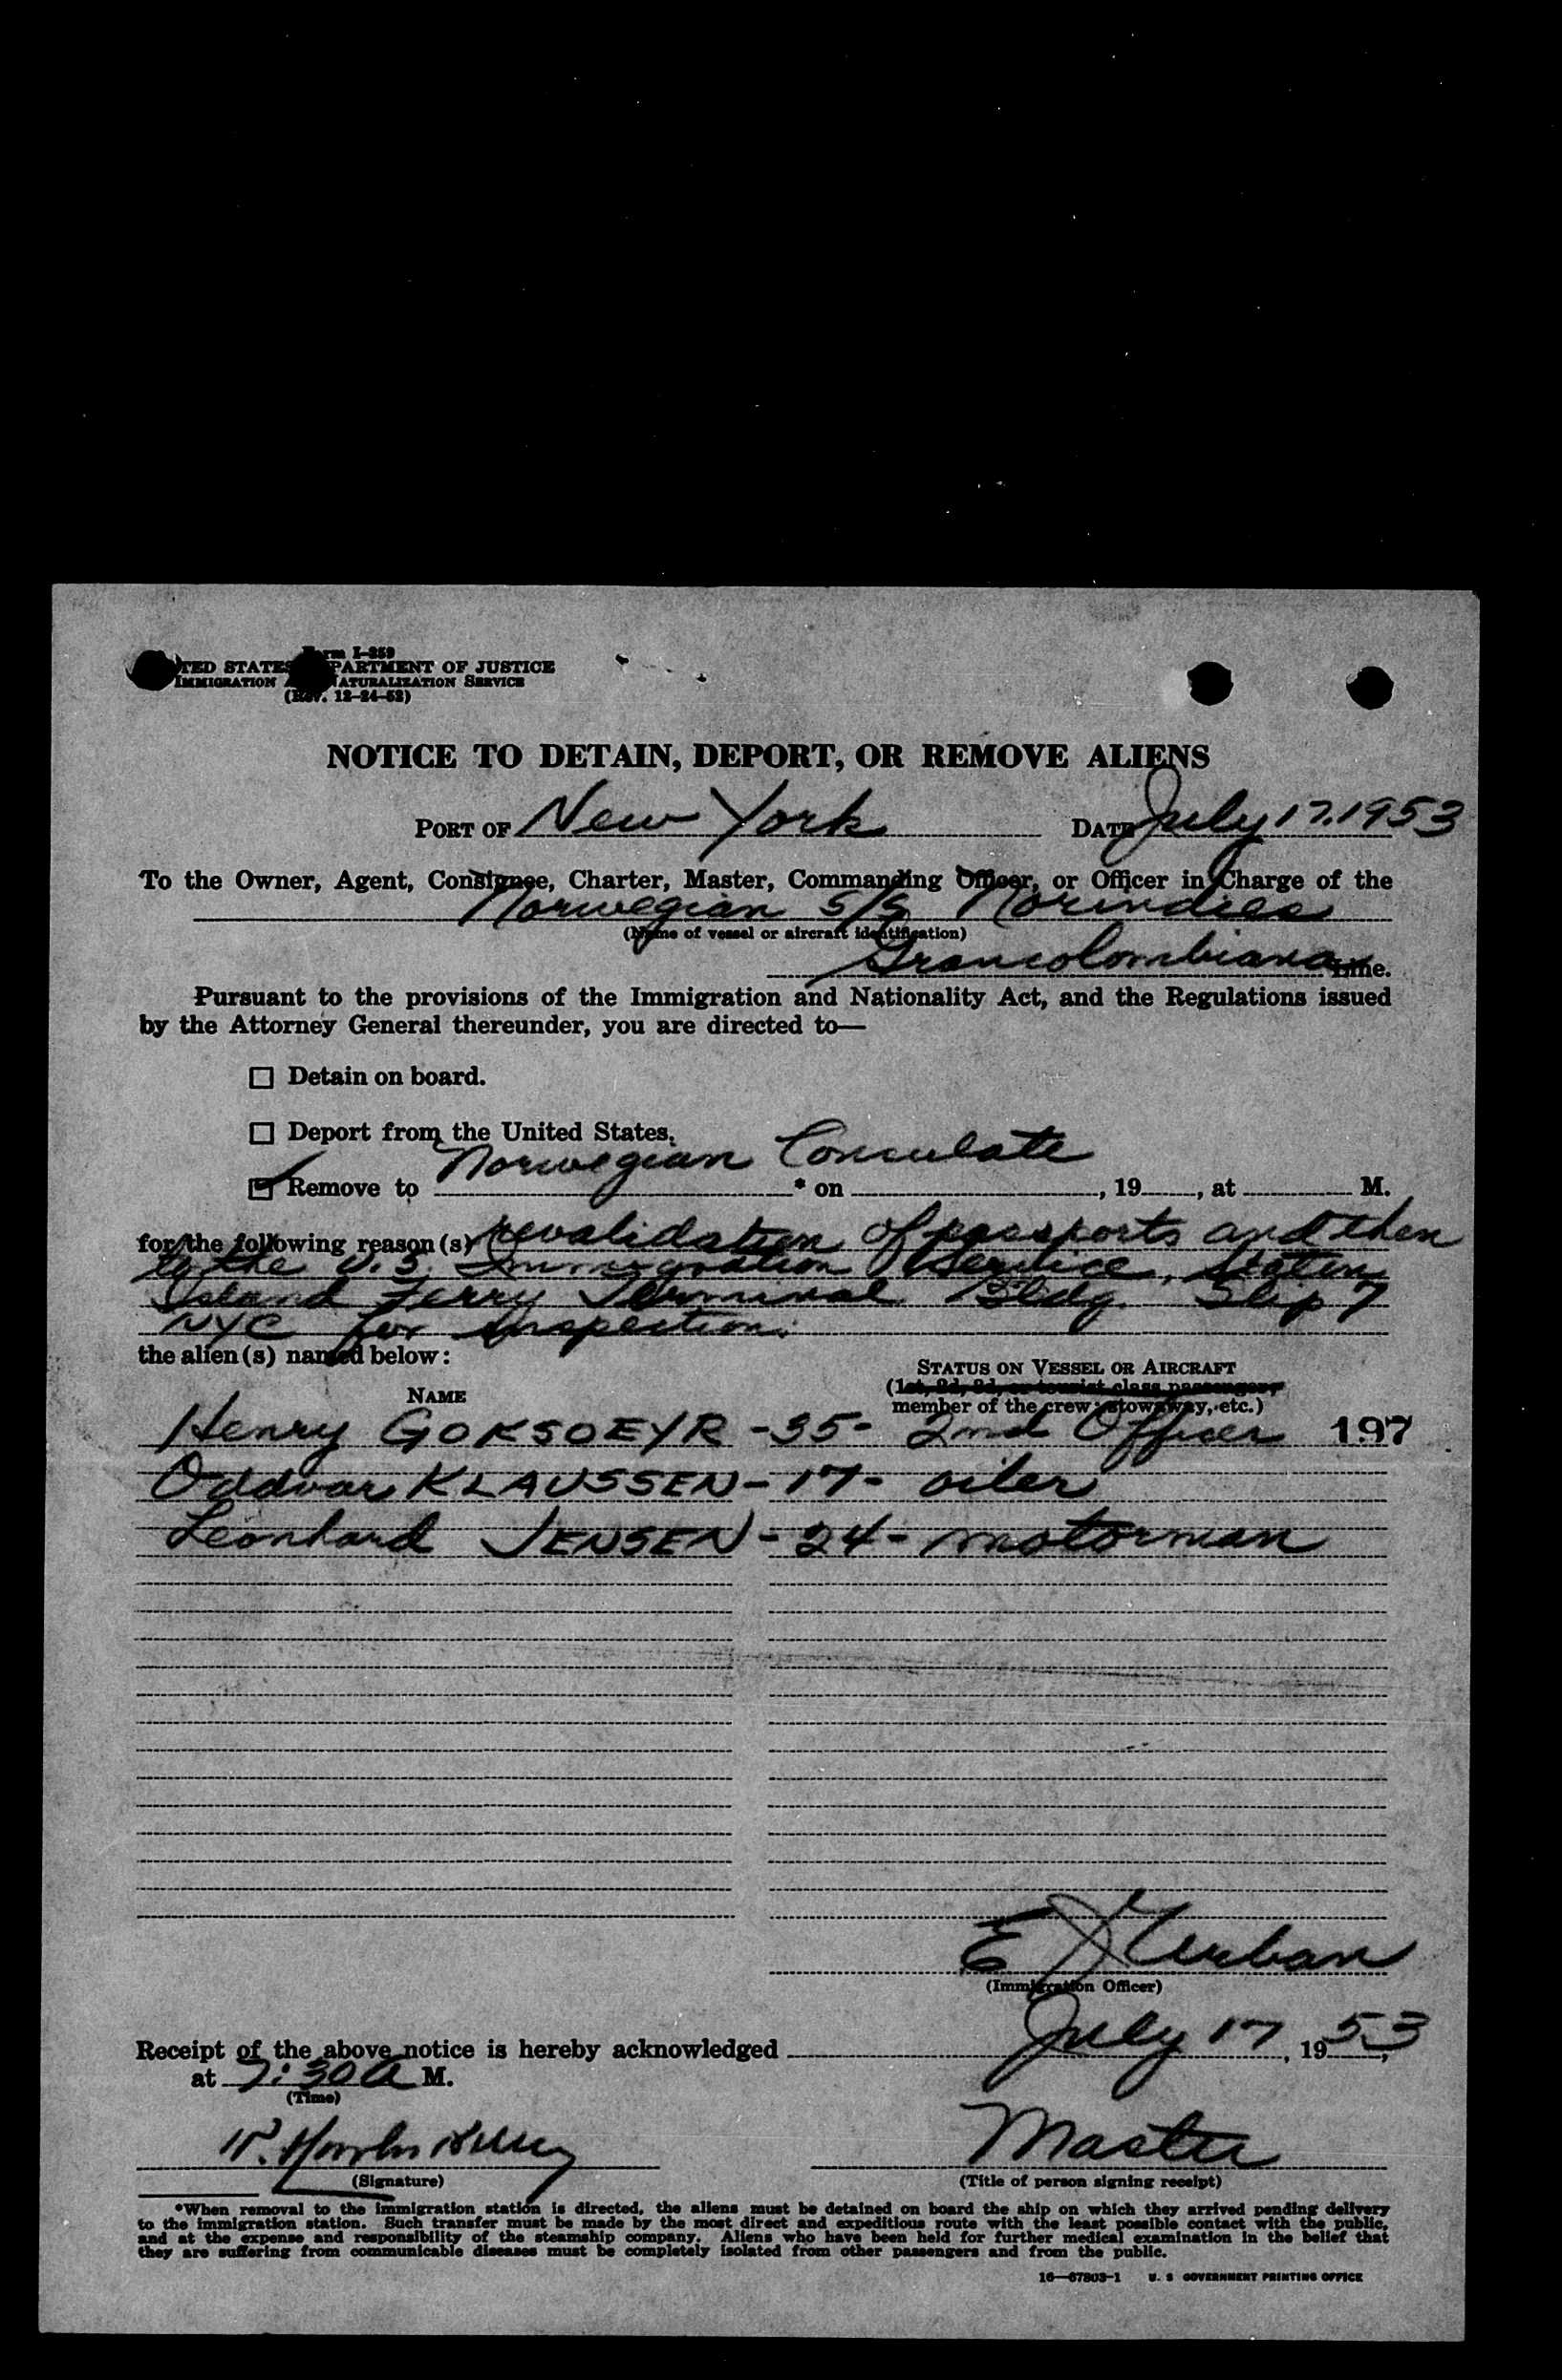 Form I-259
TED STATES PARTMENT OF JUSTICE
IMMIGRATION A NATURALIZATION SERVICE
(Rev. 12-24-52)
NOTICE TO DETAIN, DEPORT, OR REMOVE ALIENS
PORT OF New York DATE July 17, 1953
To the Owner, Agent, Consignee, Charter, Master, Commanding Officer, or Officer in Charge of the
Norwegian S/S Norindies
(Name of vessel or aircraft identification)
Grancolombiana Line.
Pursuant to the provisions of the Immigration and Nationality Act, and the Regulations issued
by the Attorney General thereunder, you are directed to—
☐ Detain on board.
☐ Deport from the United States.
☑ Remove to Norwegian Consulate * on , 19 , at M.
for the following reason(s) revalidation of passports and then
to the U.S. Immigration Service, Staten
Island Ferry Terminal Bldg. Slip 7
NYC for inspection.
the alien(s) named below:
STATUS ON VESSEL OR AIRCRAFT
NAME (1st, 2d, 3d, or tourist class passenger,
member of the crew, stowaway, etc.)
Henry GOKSOEYR -35- 2nd Officer 197
Oddvar KLAUSSEN - 17 - oiler
Leonhard JENSEN - 24 - motorman
E J Urban
(Immigration Officer)
Receipt of the above notice is hereby acknowledged July 17, 1953,
at 7:30 A M.
(Time)
Master
(Signature) (Title of person signing receipt)
*When removal to the immigration station is directed, the aliens must be detained on board the ship on which they arrived pending delivery
to the immigration station. Such transfer must be made by the most direct and expeditious route with the least possible contact with the public,
and at the expense and responsibility of the steamship company. Aliens who have been held for further medical examination in the belief that
they are suffering from communicable diseases must be completely isolated from other passengers and from the public.
16—67803-1 U. S. GOVERNMENT PRINTING OFFICE